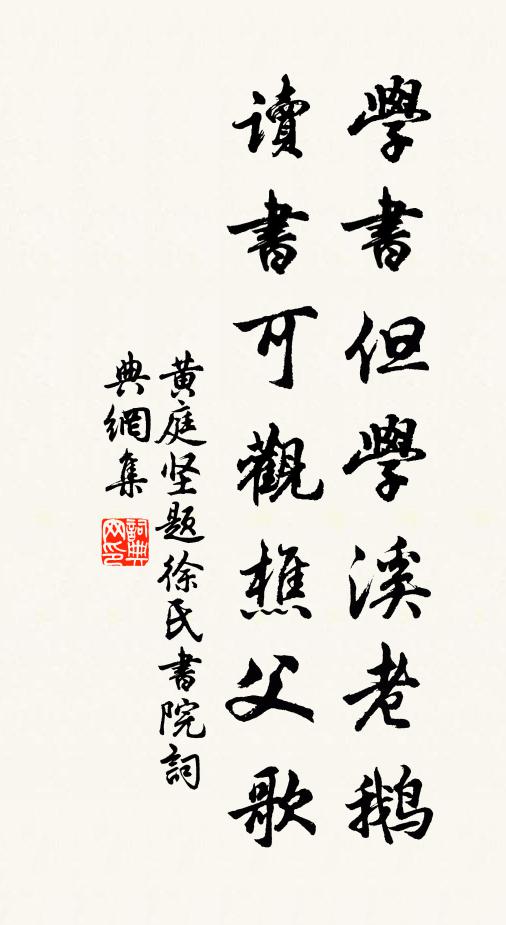 學書但學溪老鵝
讀書可觀樵父歌
黄庭坚题徐氏書院詞
典網集
詞典
网印